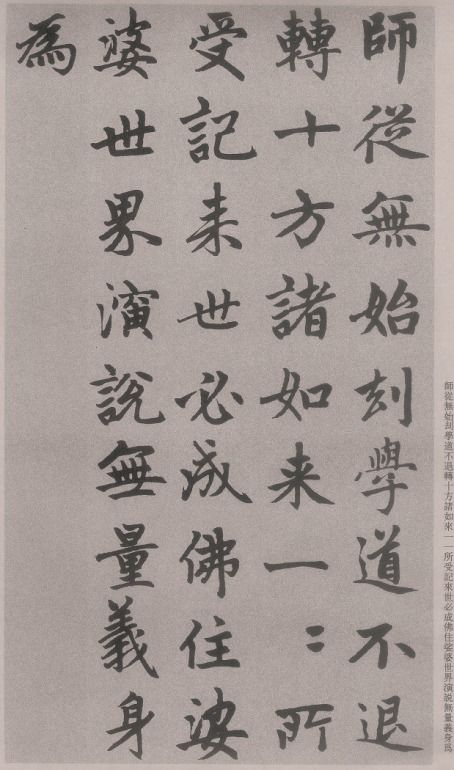 師從無始刧學道不退
轉十方諸如来一二所
受記来世必成佛住娑
婆世界演說無量義身
為
師從無始刧學道不退轉十方諸如來一一所受記來世必成佛住娑婆世界演説無量義身爲